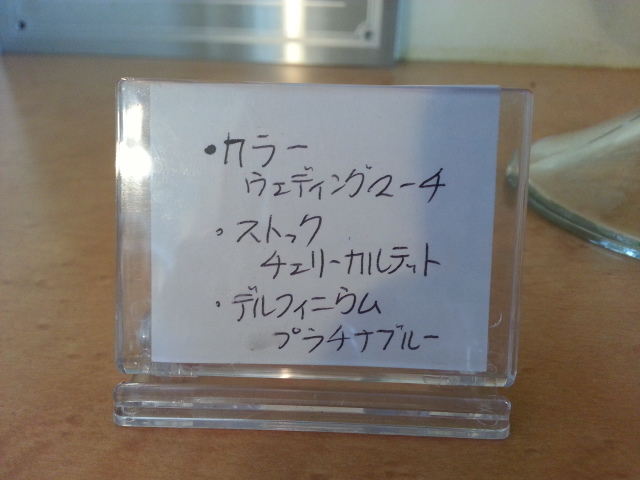 ・カラー
ウェディングマーチ
・ストック
チェリーカルテット
・デルフィニウム
プラチナブルー